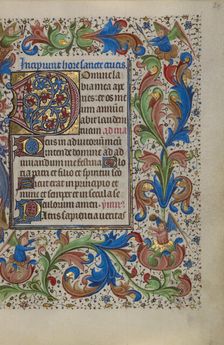 Incipiunt hore sancte crucis
Domine la
bia mea ape
ries et os me
um annu
ciabit laudem
tuam ad ma
Deus in adiutorium
intende domine ad ad
iuuandum me festina Glo
ria patri et filio et spiritui sco
Sicut erat in principio et
nunc et semper et in secula se
culorum amen ympn
Patris sapientia ueritas